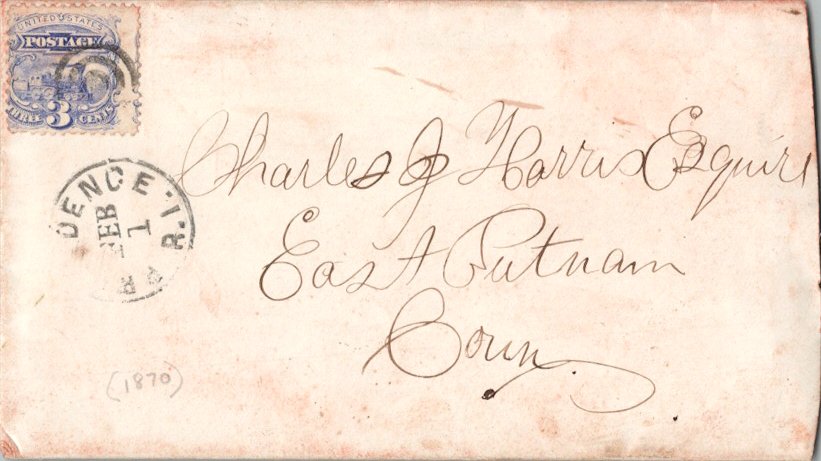 UNITED STATES
POSTAGE
THREE 3 CENTS
Charles J Harris Esquire
East Putnam
Conn
DENCE R.I.
FEB
1
(1870)